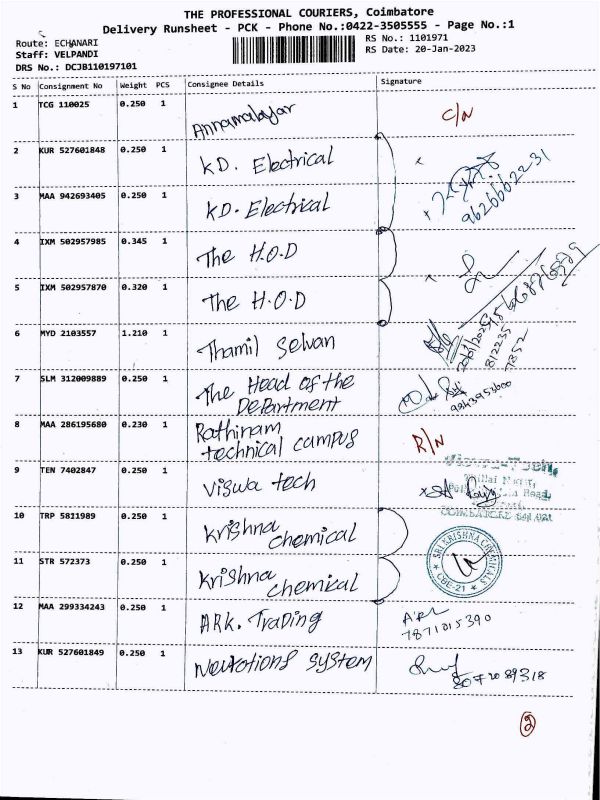 THE PROFESSIONAL COURIERS, Coimbatore
Delivery Runsheet - PCK - Phone No.:0422-3505555 - Page No.:1
Route: ECHANARI
Staff: VELPANDI
DRS No.: DCJB110197101
RS No.: 1101971
RS Date: 20-Jan-2023
S No Consignment No Weight PCS Consignee Details Signature
1 TCG 110025 0.250 1 Annamalayar C/N
2 KUR 527601848 0.250 1 KD. Electrical
3 MAA 942693405 0.250 1 KD. Electrical 9626662231
4 IXM 502957985 0.345 1 The H.O.D
5 IXM 502957870 0.320 1 The H.O.D
6 MYD 2103557 1.210 1 Thamil Selvan 812235
7852
7 SLM 312009889 0.250 1 The Head of the
Department 9943953600
8 MAA 286195680 0.230 1 Rathinam
technical campus R/N
9 TEN 7402847 0.250 1 Viswa tech
COIMBATORE 641 021
10 TRP 5811989 0.250 1 Krishna
chemical
11 STR 572373 0.250 1 Krishna
chemical SRI KRISHNA CHEMICALS
CBE-21
12 MAA 299334243 0.250 1 ARK. Trading
7871015390
13 KUR 527601849 0.250 1 system
8072089318
2